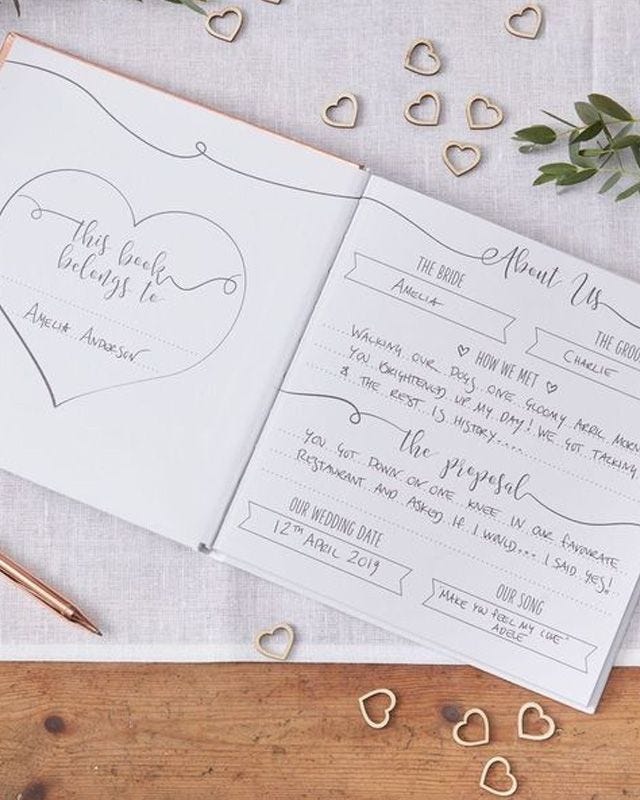 this book
belongs to
AMELIA ANDERSON
About Us
THE BRIDE
AMELIA
THE GROO
CHARLIE
HOW WE MET
WALKING OUR DOGS ONE GLOOMY APRIL MORN
YOU BRIGHTENED UP MY DAY! WE GOT TALKING
& THE REST IS HISTORY....
the proposal
YOU GOT DOWN ON ONE KNEE IN OUR FAVOURATE
RESTAURANT AND ASKED IF I WOULD... I SAID YES!
OUR WEDDING DATE
12TH APRIL 2019
OUR SONG
"MAKE YOU FEEL MY LOVE"
ADELE